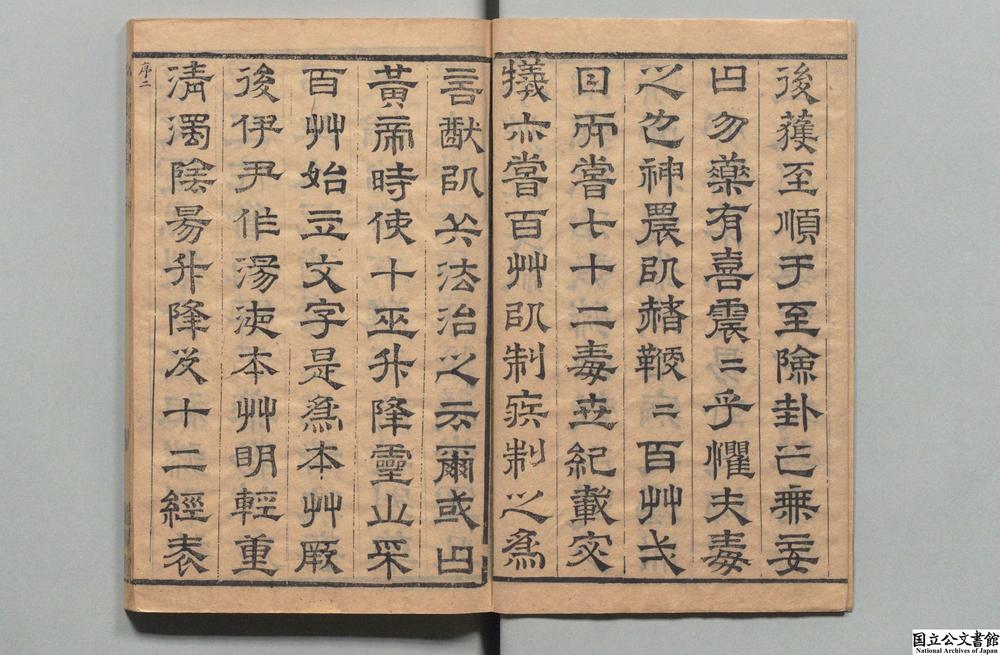 後蒦至順于至險卦亡無妄
曰勿藥有喜震二乎懼夫毒
之也神農㠯赭鞭二百艸弌
日而嘗七十二毒世紀載宓
犧亦嘗百艸㠯制疾制之爲
言猷㠯兵法治之云爾或曰
黃帝時使十巫升降靈山采
百艸始立文字是爲本艸厥
後伊尹作湯液本艸明輕重
淸濁陰昜升降及十二經表
序二
国立公文書館
National Archives of Japan